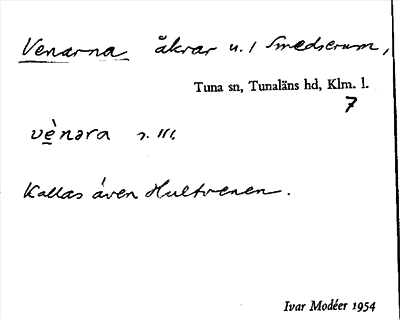 Venarna åkrar u. 1 Smedserum,
Tuna sn, Tunaläns hd, Klm. l.
7
vè̱nəra s. III.
Kallas även Hultvenen.
Ivar Modéer 1954